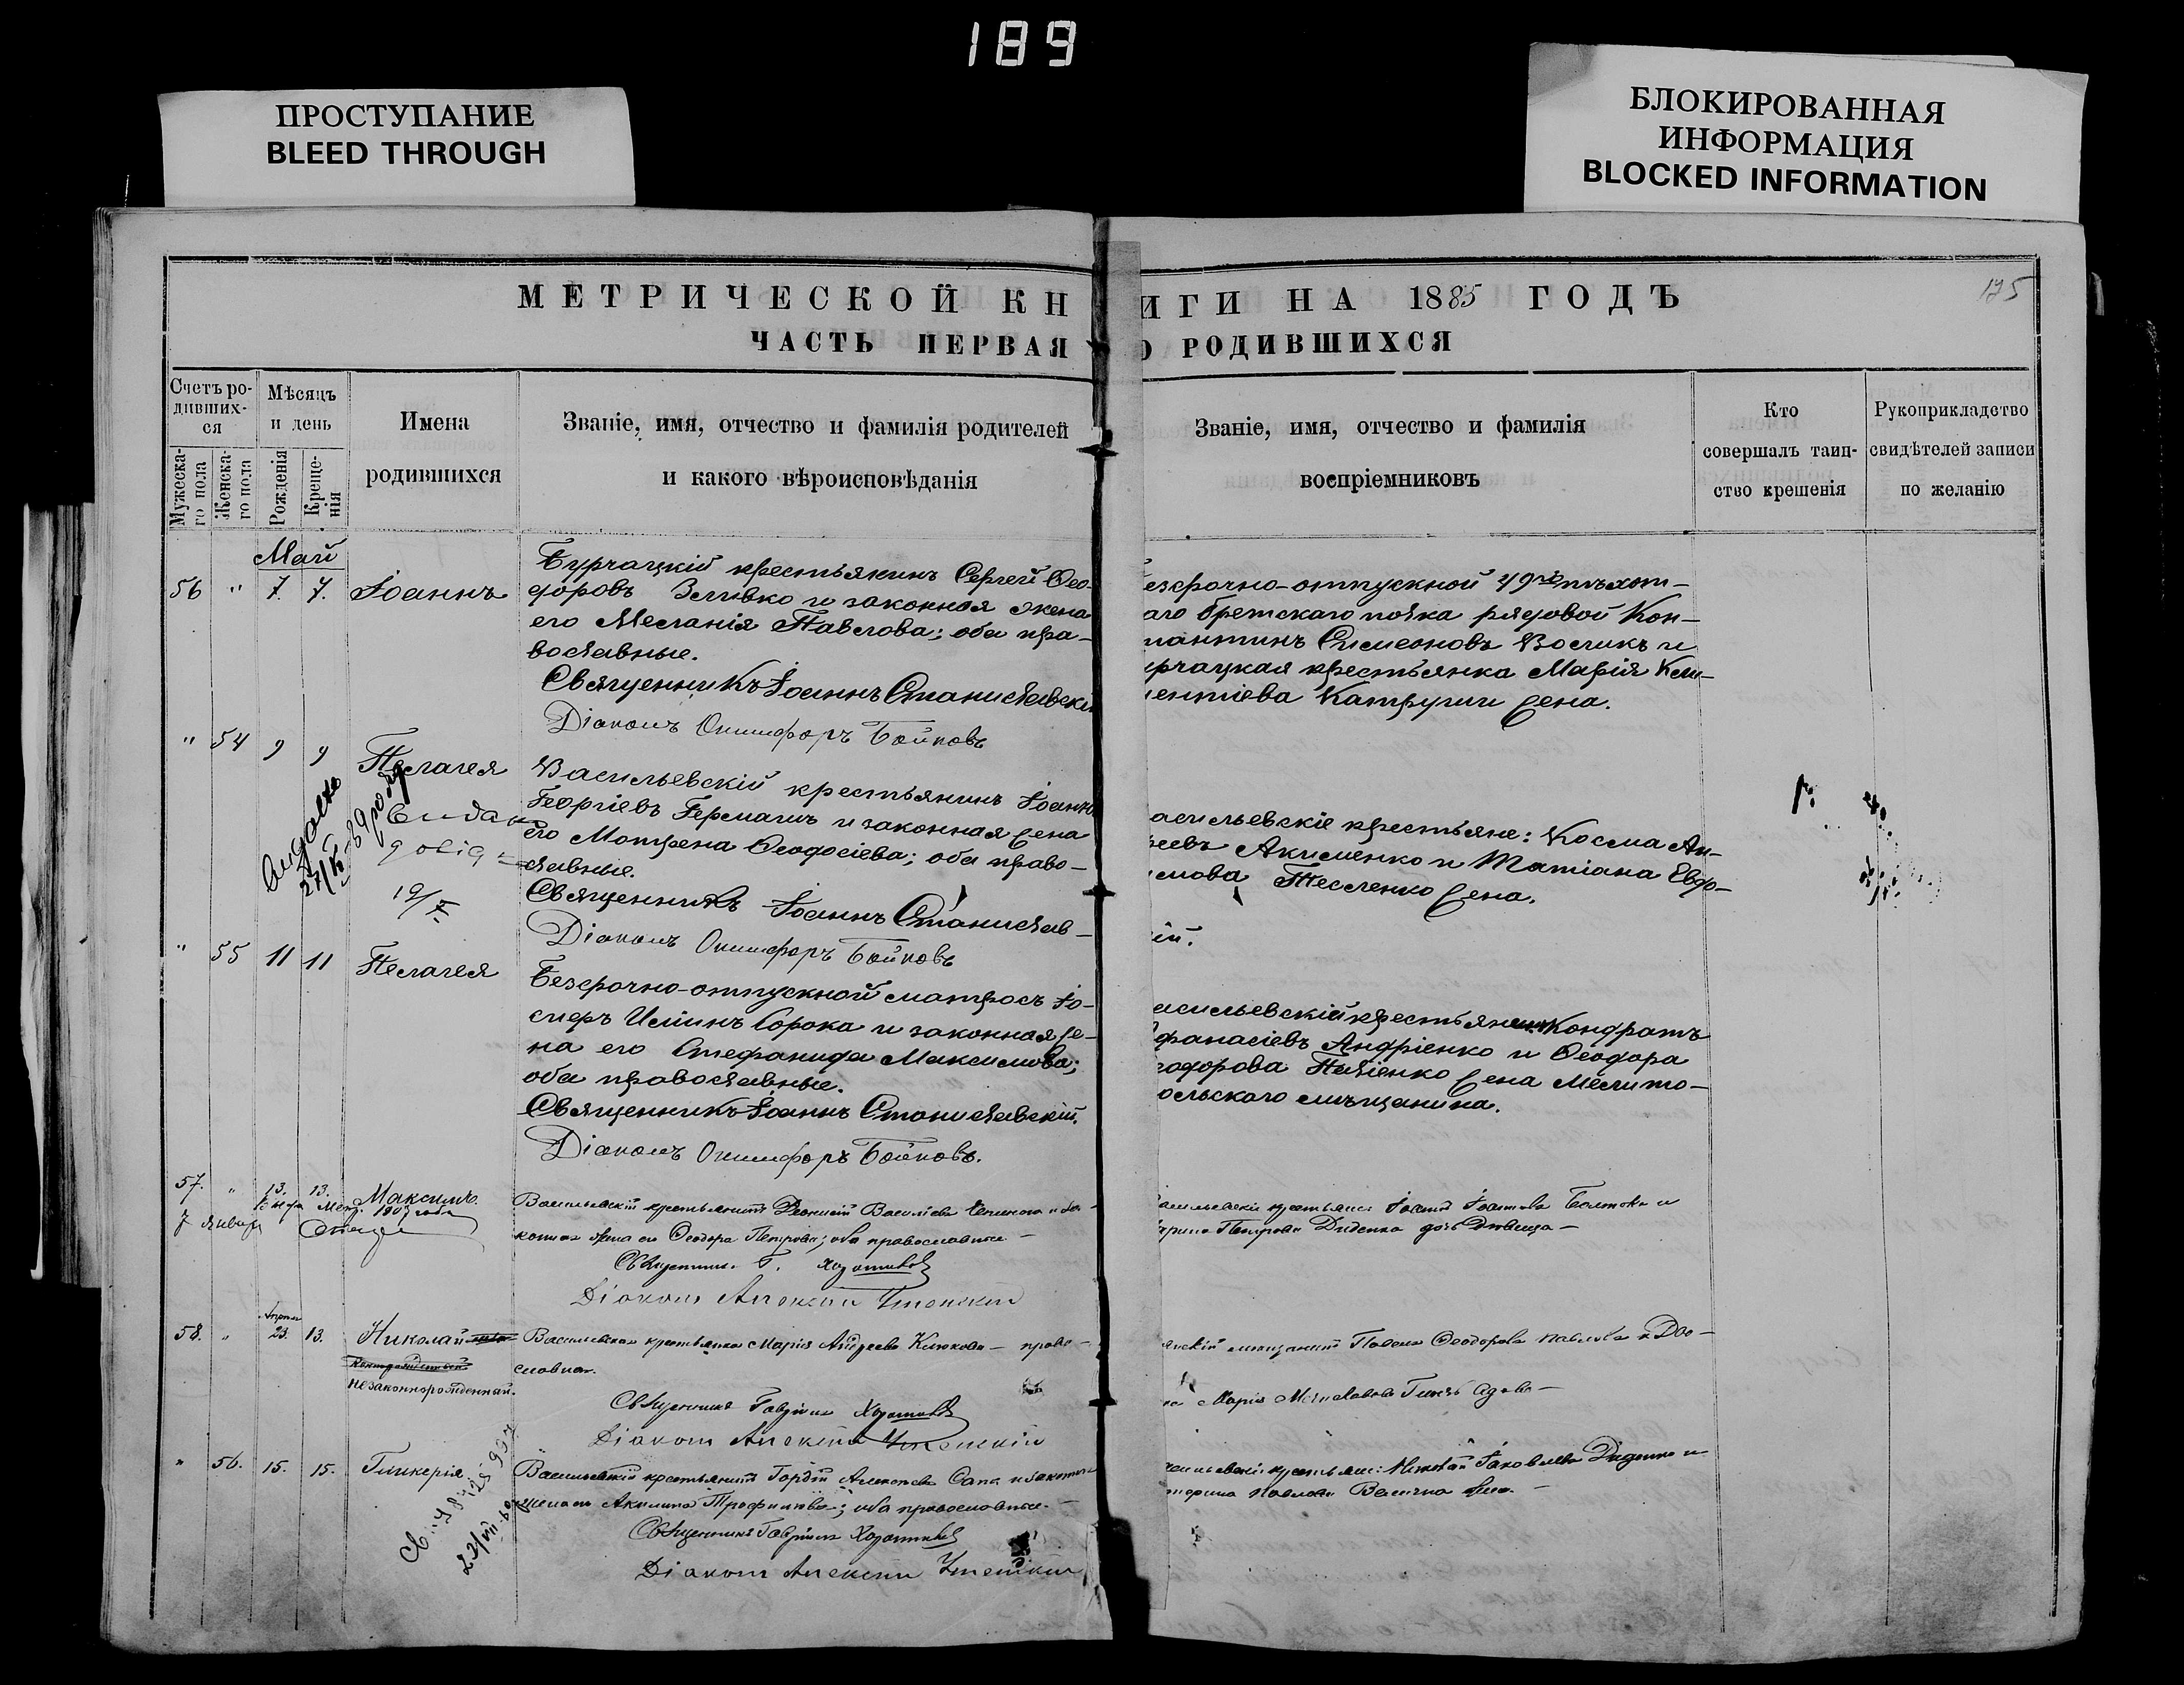 189
ПРОСТУПАНИЕ
BLEED THROUGH
БЛОКИРОВАННАЯ
ИНФОРМАЦИЯ
BLOCKED INFORMATION
175
МЕТРИЧЕСКОЙ КН ИГИ НА 1885 ГОДЪ
ЧАСТЬ ПЕРВАЯ О РОДИВШИХСЯ
Счетъ ро-
дивших-
ся
Мужеска-
го пола
Женска-
го пола
Мѣсяцъ
и день
Рожденія
Креще-
нія
Имена
родившихся
Званіе, имя, отчество и фамилія родителей
и какого вѣроисповѣданія
Званіе, имя, отчество и фамилія
воспріемниковъ
Кто
совершалъ таин-
ство крещенія
Рукоприкладство
свидѣтелей записи
по желанію
Май
56 " 7. 7. Іоаннъ
Бурчацкій крестьянинъ Сергей Ѳео-
доровъ и законная жена
его Меланія Павлова; оба пра-
вославные.
Священникъ Іоаннъ Станиславскій
Діаконъ Онисифоръ Бойковъ
езсрочно-отпускной 49го пѣхот-
аго Брестскаго полка рядовой Кон-
тантинъ Симеоновъ Воликъ и
урчацкая крестьянка Марія Кли-
ментіева жена.
" 54 9 9 Пелагея
Васильевскій крестьянинъ Іоаннъ
Георгіевъ Германъ и законная жена
его Мотрена Ѳеодосіева; оба право-
славные.
Священникъ Іоаннъ Станислав-
Діаконъ Онисифоръ Бойковъ
асильевскіе крестьяне: Косма Ан-
реевъ Акименко и Татіана Евдо-
имова Тесленко жена.
кій.
19/X
" 55 11 11 Пелагея
Безсрочно-отпускной матросъ Іо-
сифъ Илiинъ Сорока и законная же-
на его Стефанида Максимова;
оба православные.
Священникъ Іоаннъ Станиславскій.
Діаконъ Онисифоръ Бойковъ.
асильевскій крестьянинъ Кондратъ
фанасіевъ Андріенко и Ѳеодора
еодорова жена Мелито-
ольскаго мѣщанина.
57. " 13. 13. Максимъ.
7 Января 1907 года
Васильевскій крестьянинъ Василіевъ и за-
конная жена его Ѳеодора Петрова; оба православные
Священникъ Г.
Діаконъ Алексій
асильевскіе крестьяне: Іоаннъ Іоанновъ и
Петрова Диденко дочь Дѣвица
58. " 23. 13. Николай
незаконнорожденный.
Васильевская крестьянка Марія Андреева Клюкова — право-
славная.
Священникъ Гавріилъ
Діаконъ Алексій
мѣщанинъ Павелъ Ѳеодоровъ и Дво-
ка Марія
" 56. 15. 15. Гликерія
Васильевскій крестьянинъ Гордій Алексѣевъ Сапа и законная
жена его Акилина Трофимова; оба православные.
Священникъ Гавріилъ
Діаконъ Алексій
асильевскіе крестьяне: Николай Іаковлевъ Диденко и
Павлова Величко